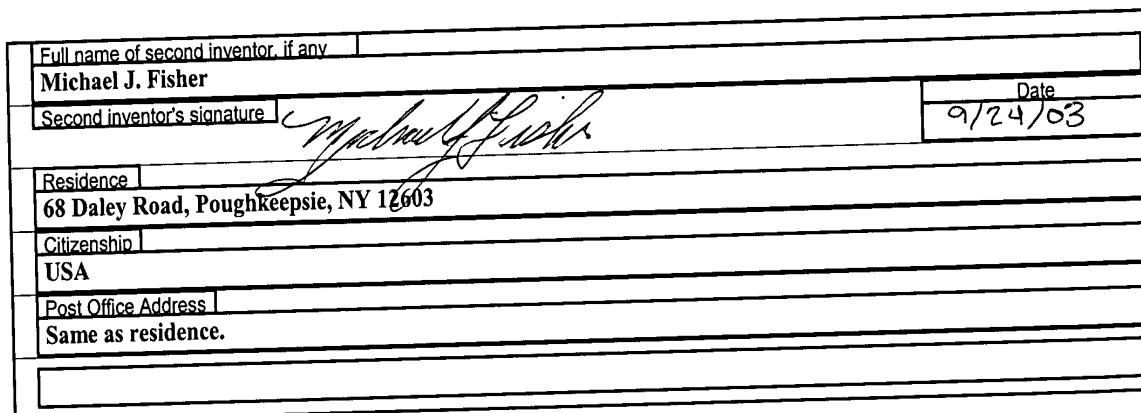 Full name of second inventor, if any
Michael J. Fisher
Second inventor's signature
Michael J Fisher
Date
9/24/03
Residence
68 Daley Road, Poughkeepsie, NY 12603
Citizenship
USA
Post Office Address
Same as residence.